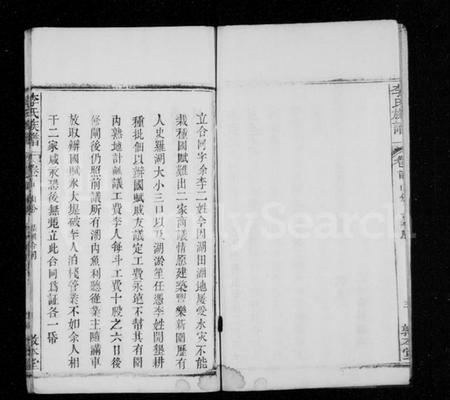 李氏族譜
卷首
立合同字余李二姓今因湖田湖地屢受水灾不能
栽種國賦難出二家商議情願建築豐樂新圍歷有
人史羅湖大小三口以及湖淤筀任憑李姓開墾耕
種批佃以辦國賦戚友議定工費永遠不幫其有圍
內熟地計畝議工費李人每斗工費十股之六日後
修閘後仍照前議所有湖內魚利聽從業主隨滿車
放取辦國賦永大堤破李人泊棧管業不如余人相
干二家咸永認後無憑立此合同為証各一帋
敦本堂
李氏族譜
卷首
三
敦本堂
MySearch